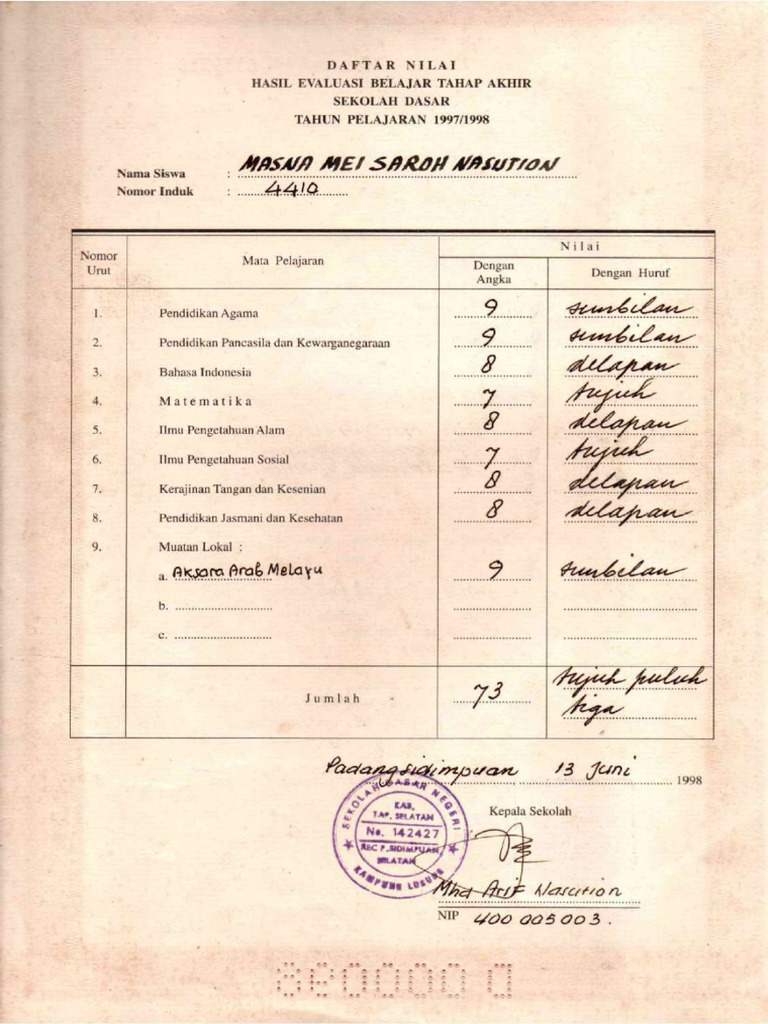 DAFTAR NILAI
HASIL EVALUASI BELAJAR TAHAP AKHIR
SEKOLAH DASAR
TAHUN PELAJARAN 1997/1998
Nama Siswa : MASNA MEI SAROH NASUTION
Nomor Induk : 4410
Nomor Urut Mata Pelajaran Nilai
Dengan Angka Dengan Huruf
1. Pendidikan Agama 9 sembilan
2. Pendidikan Pancasila dan Kewarganegaraan 9 sembilan
3. Bahasa Indonesia 8 delapan
4. Matematika 7 tujuh
5. Ilmu Pengetahuan Alam 8 delapan
6. Ilmu Pengetahuan Sosial 7 tujuh
7. Kerajinan Tangan dan Kesenian 8 delapan
8. Pendidikan Jasmani dan Kesehatan 8 delapan
9. Muatan Lokal :
a. Aksara Arab Melayu 9 sembilan
b.
c.
Jumlah 73 tujuh puluh
tiga
Padangsidimpuan, 13 Juni 1998
Kepala Sekolah
SEKOLAH DASAR NEGERI
KAB.
TAP. SELATAN
No. 142427
KEC P. SIDIMPUAN
SELATAN
KAMPUNG LOSUNG
Mhd Arif Nasution
NIP 400 005 003.